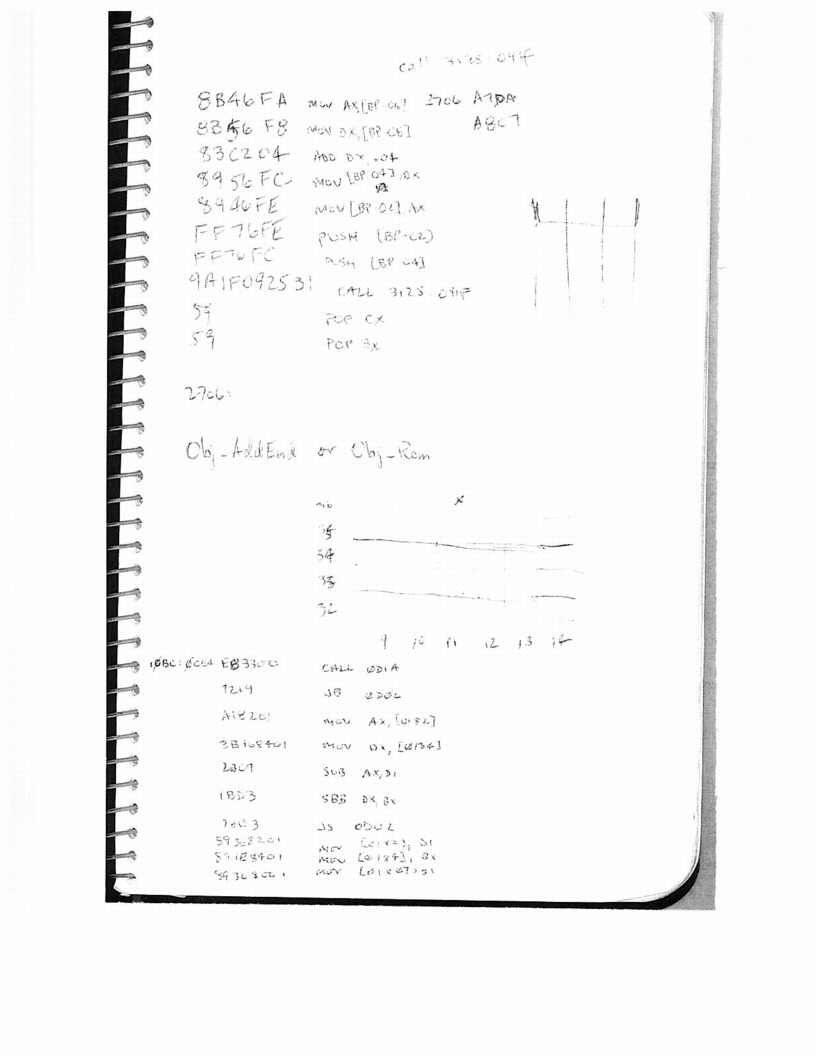 call 3125:091F
8B46FA MOV AX,[BP-06] 2706 A7DA
8B56F8 MOV DX,[BP-08] A8C7
83C204 ADD DX,+04
8956FC MOV [BP-04],DX
8946FE MOV [BP-02],AX
FF76FE PUSH [BP-02]
FF76FC PUSH [BP-04]
9A1F092531 CALL 3125:091F
59 POP CX
59 POP BX
2706:
Obj-AddEnd or Obj-Rem
35
34
33
32
9 10 11 12 13 14
CALL 0D1A
JB 0D02
A18201 MOV AX,[0182]
MOV DX,[0184]
SUB AX,DI
1BD3 SBB DX,BX
JS 0D02
893E8201 MOV [0182],DI
891E8401 MOV [0184],BX
MOV